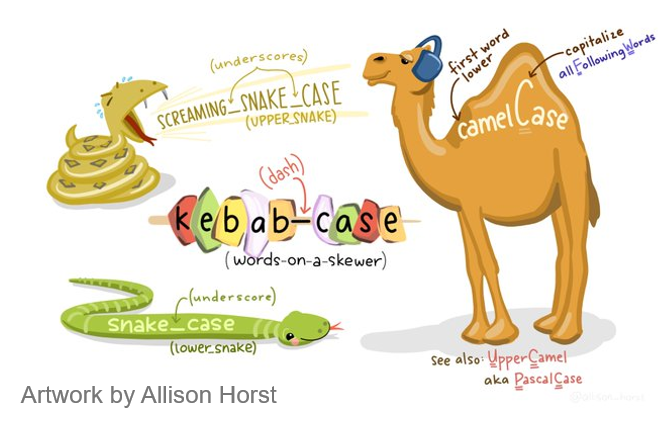 (underscores)
SCREAMING_SNAKE_CASE
(UPPER_SNAKE)
first word
lower
capitalize
allFollowingWords
camelCase
(dash)
kebab-case
(words-on-a-skewer)
(underscore)
snake_case
(lower_snake)
see also: UpperCamel
aka PascalCase
Artwork by Allison Horst
@allison_horst